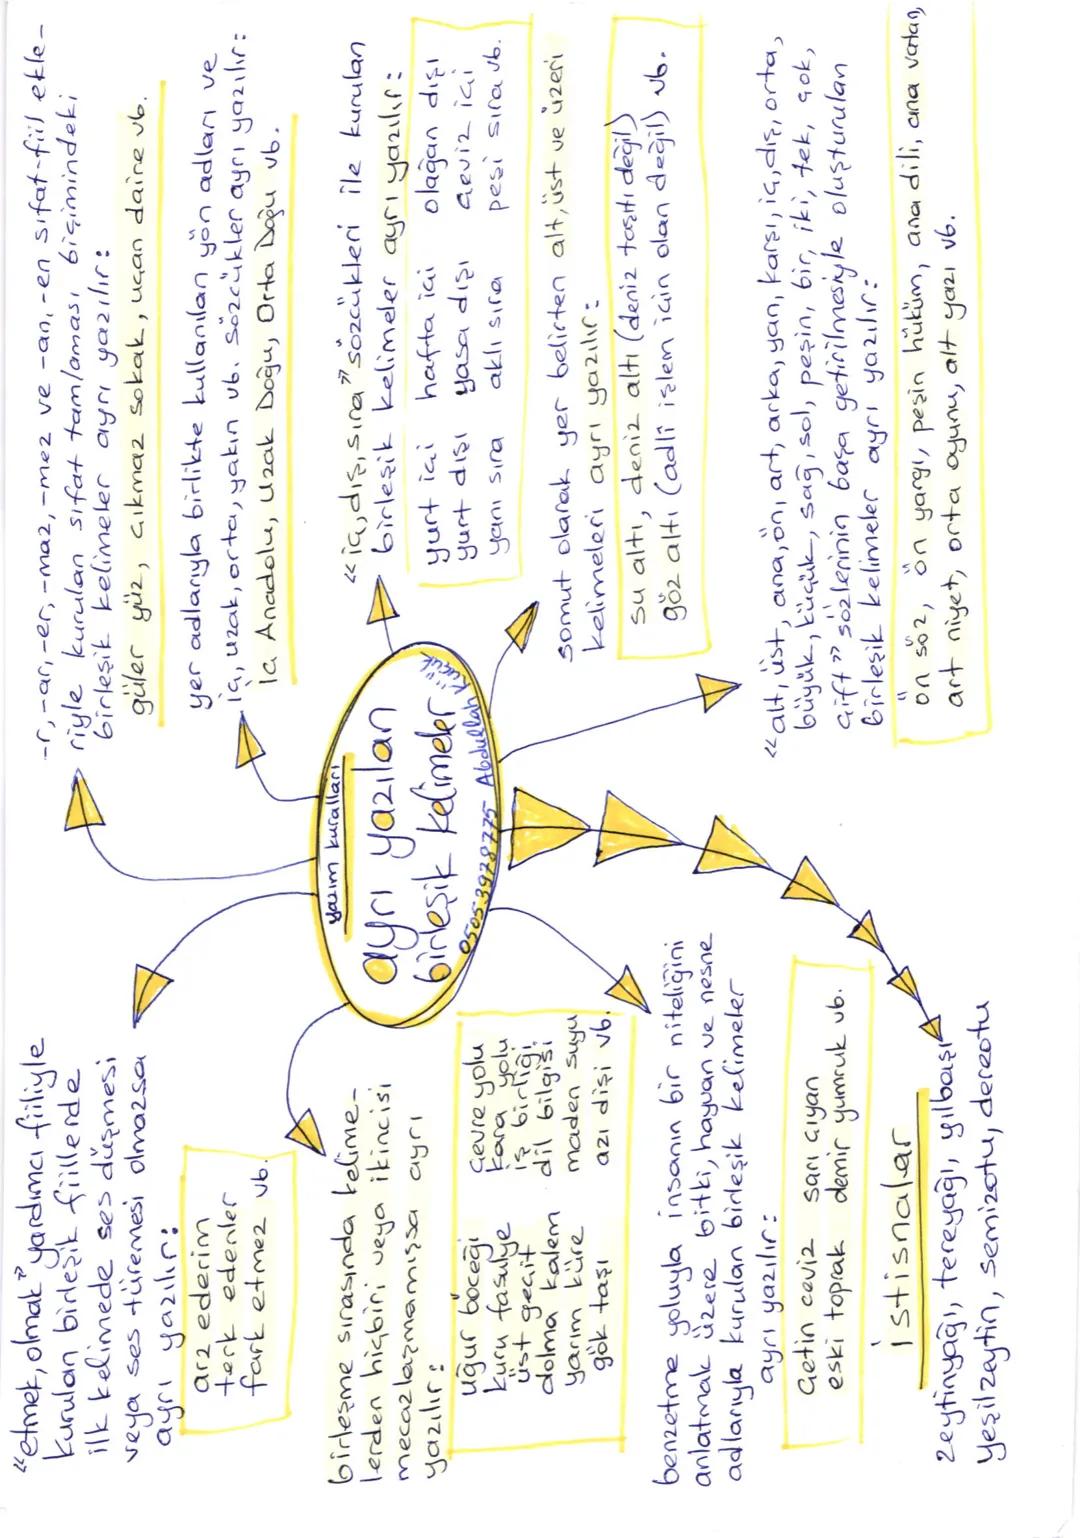 yazım kuralları
ayrı yazılan
birleşik kelimeler
05053978775 Abdullah Küçük
"etmek, olmak" yardımcı fiiliyle
kurulan birleşik fiillerde
ilk kelimede ses düşmesi
veya ses türemesi olmazsa
ayrı yazılır:
arz ederim
terk edenler
fark etmez vb.
-r, -ar, -er, -maz, -mez ve -an, -en sıfat-fiil ekle-
riyle kurulan sıfat tamlaması biçimindeki
birleşik kelimeler ayrı yazılır:
güler yüz, çıkmaz sokak, uçan daire vb.
yer adlarıyla birlikte kullanılan yön adları ve
iç, uzak, orta, yakın vb. sözcükler ayrı yazılır:
İç Anadolu, Uzak Doğu, Orta Doğu vb.
"iç, dış, sıra" sözcükleri ile kurulan
birleşik kelimeler ayrı yazılır:
yurt içi hafta içi olağan dışı
yurt dışı yasa dışı ceviz içi
yanı sıra aklı sıra peşi sıra vb.
somut olarak yer belirten alt, üst ve üzeri
kelimeleri ayrı yazılır:
su altı, deniz altı (deniz taşıtı değil)
göz altı (adlî işlem için olan değil) vb.
"alt, üst, ana, ön, art, arka, yan, karşı, iç, dış, orta,
büyük, küçük, sağ, sol, peşin, bir, iki, tek, çok,
çift" sözlerinin başa getirilmesiyle oluşturulan
birleşik kelimeler ayrı yazılır:
ön söz, ön yargı, peşin hüküm, ana dili, ana vatan,
art niyet, orta oyunu, alt yazı vb.
birleşme sırasında kelime-
lerden hiçbiri veya ikincisi
mecazlaşmamışsa ayrı
yazılır:
uğur böceği çevre yolu
kuru fasulye kara yolu
üst geçit iş birliği
dolma kalem dil bilgisi
yarım küre maden suyu
gök taşı azı dişi vb.
benzetme yoluyla insanın bir niteliğini
anlatmak üzere bitki, hayvan ve nesne
adlarıyla kurulan birleşik kelimeler
ayrı yazılır:
Çetin ceviz sarı çıyan
eski toprak demir yumruk vb.
istisnalar
zeytinyağı, tereyağı, yılbaşı
yeşilzeytin, semizotu, dereotu